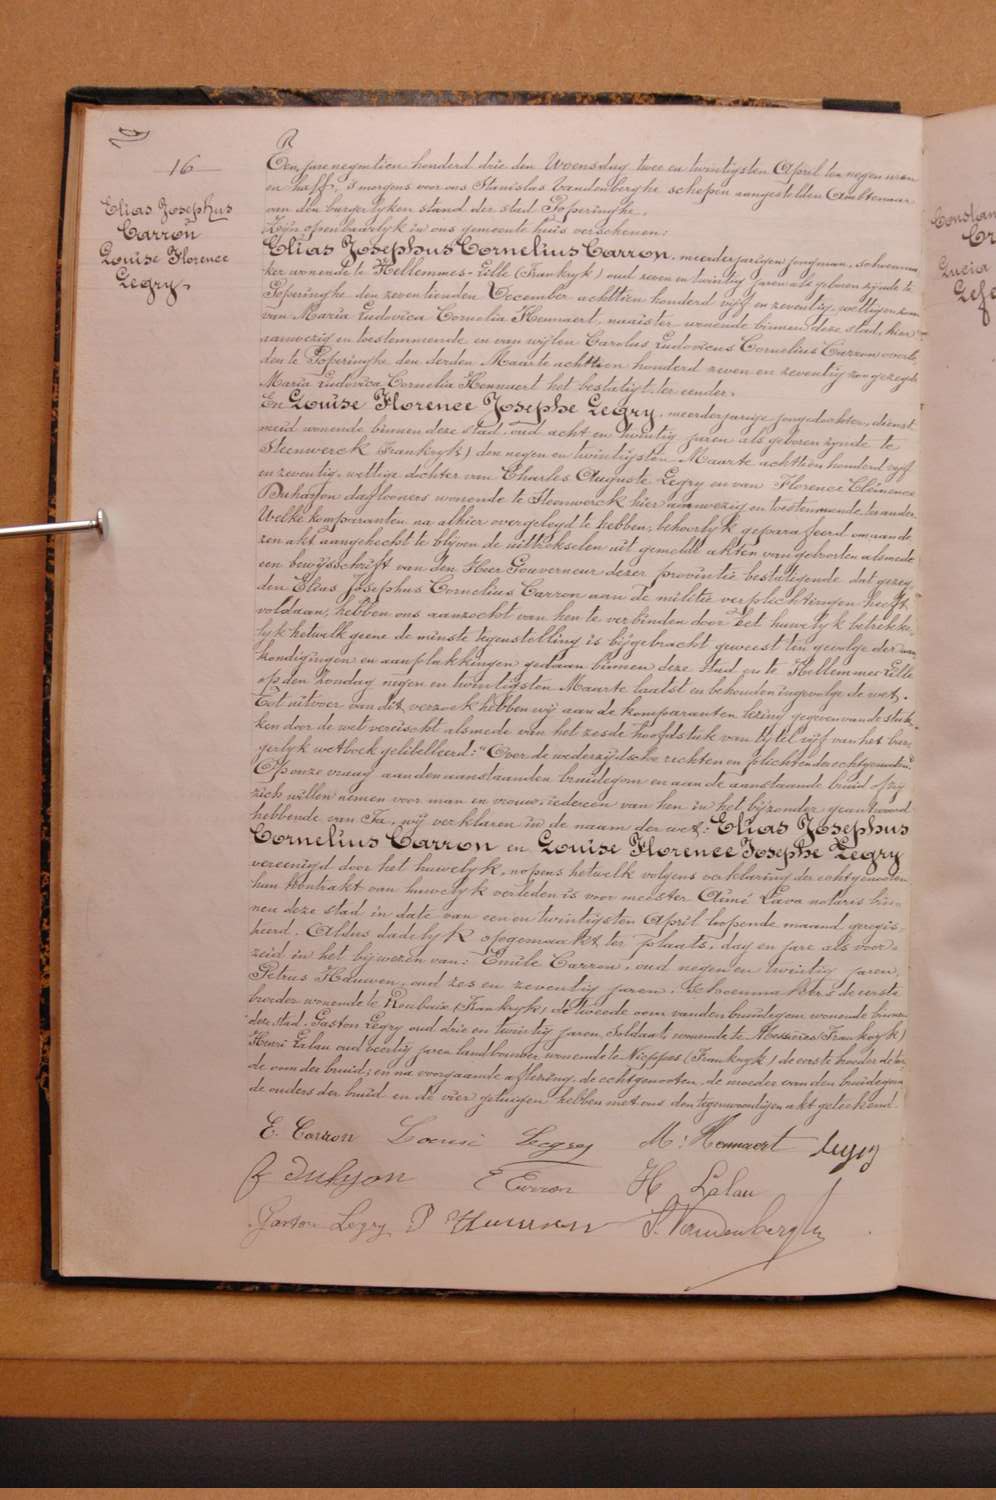 16
Elias Josephus
Carron
Louise Florence
Legry.
Een jare negentien honderd drie den Woensdag twee en twintigsten April ten negen uren
en half, 's morgens voor ons Stanislas Vandenberghe schepen aangestelden Ambtenaar
van den burgerlyken stand der stad Poperinghe.
Zyn openbaarlyk in ons gemeente huis verschenen:
Elias Josephus Cornelius Carron, meerderjarigen jongman, schoenma
ker wonende te Hellemmes-Lille (Frankryk) oud zeven en twintig jaren als geboren zynde te
Poperinghe den zeventienden December achttien honderd vyf en zeventig, wettigen zoon
van Maria Ludovica Cornelia Hennaert, naaister wonende binnen deze stad, hier
aanwezig en toestemmende en van wylen Carolus Ludovicus Cornelius Carron overle,
den te Poperinghe den derden Maarte achttien honderd zeven en zeventig zoo gezegde
Maria Ludovica Cornelia Hennaert het bestatigt, ter eender.
En Louise Florence Josephe Legry, meerderjarige jongedochter, dienst
meid wonende binnen deze stad, oud acht en twintig jaren als geboren zynde te
Steenwerck Frankryk) den negen en twintigsten Maarte achttien honderd vyf
en zeventig, wettige dochter van Charles Auguste Legry en van Florence Clémence
Duhayon daglooners wonende te Steenwerck hier aanwezig en toestemmende, ter ander.
Welke komparanten na alhier overgelegd te hebben, behoorlyk geparafeerd om aan de,
zen akt aangehecht te blyven de uittrekselen uit gemelde akten van geboorten alsmede
een bewysschrift van den Heer Gouverneur dezer provintie bestatigende dat gezeg,
den Elias Josephus Cornelius Carron aan de militie verplichtingen heeft
voldaan, hebben ons aanzocht van hen te verbinden door het huwelyk betrekke,
lyk hetwelk geene de minste tegenstelling is bygebracht geweest ten gevolge der van
kondigingen en aanplakkingen gedaan binnen deze stad en te Hellemmes Lille
op den Zondag negen en twintigsten Maarte laatst en behouden ingevolge de wet.
Tot uitvoer van dit verzoek hebben wy aan de komparanten lezing gegeven van de stuk,
ken door de wet vereischt alsmede van het zesde hoofdstuk van tytel vyf van het bur,
gerlyk wetboek gelibelleerd: "Over de wederzydsche rechten en plichten der echtgenooten."
Op onze vraag aan den aanstaanden bruidegom en aan de aanstaande bruid of zy
zich willen nemen voor man en vrouw, iedereen van hen in het byzonder geantwoord
hebbende van Ja, wy verklaren in de naam der wet: Elias Josephus
Cornelius Carron en Louise Florence Josephe Legry
vereenigd door het huwelyk, nopens hetwelk volgens verklaring der echtgenooten
hun kontrakt van huwelyk verleden is voor meester Aimé Lava notaris bin,
nen deze stad in date van een en twintigsten April loopende maand geregis,
treerd. Aldus dadelyk opgemaakt ter plaats, dag en jare als voor,
zeid in het bywezen van: Emile Carron, oud negen en twintig jaren,
Petrus Hauwen, oud zes en zeventig jaren, schoenmakers de eerste
broeder wonende te Roubaix (Frankryk) de tweede oom van den bruidegom wonende binnen
deze stad, Gaston Legry oud drie en twintig jaren, soldaat, wonende te Mezières (Frankryk)
Henri Lalau oud veertig jaren landbouwer wonende te Nieppes (Frankryk) de eerste broeder de twe,
de oom der bruid; en na voorgaande aflezing, de echtgenooten, de moeder van den bruidegom
de ouders der bruid en de vier getuigen hebben met ons den tegenwoordigen akt geteekend.
E. Carron Louise Legry M: Hennaert Legry
f duhyon E Carron H Lalau
Gaston Legry P Hauwen S. Vandenberghe
Elias